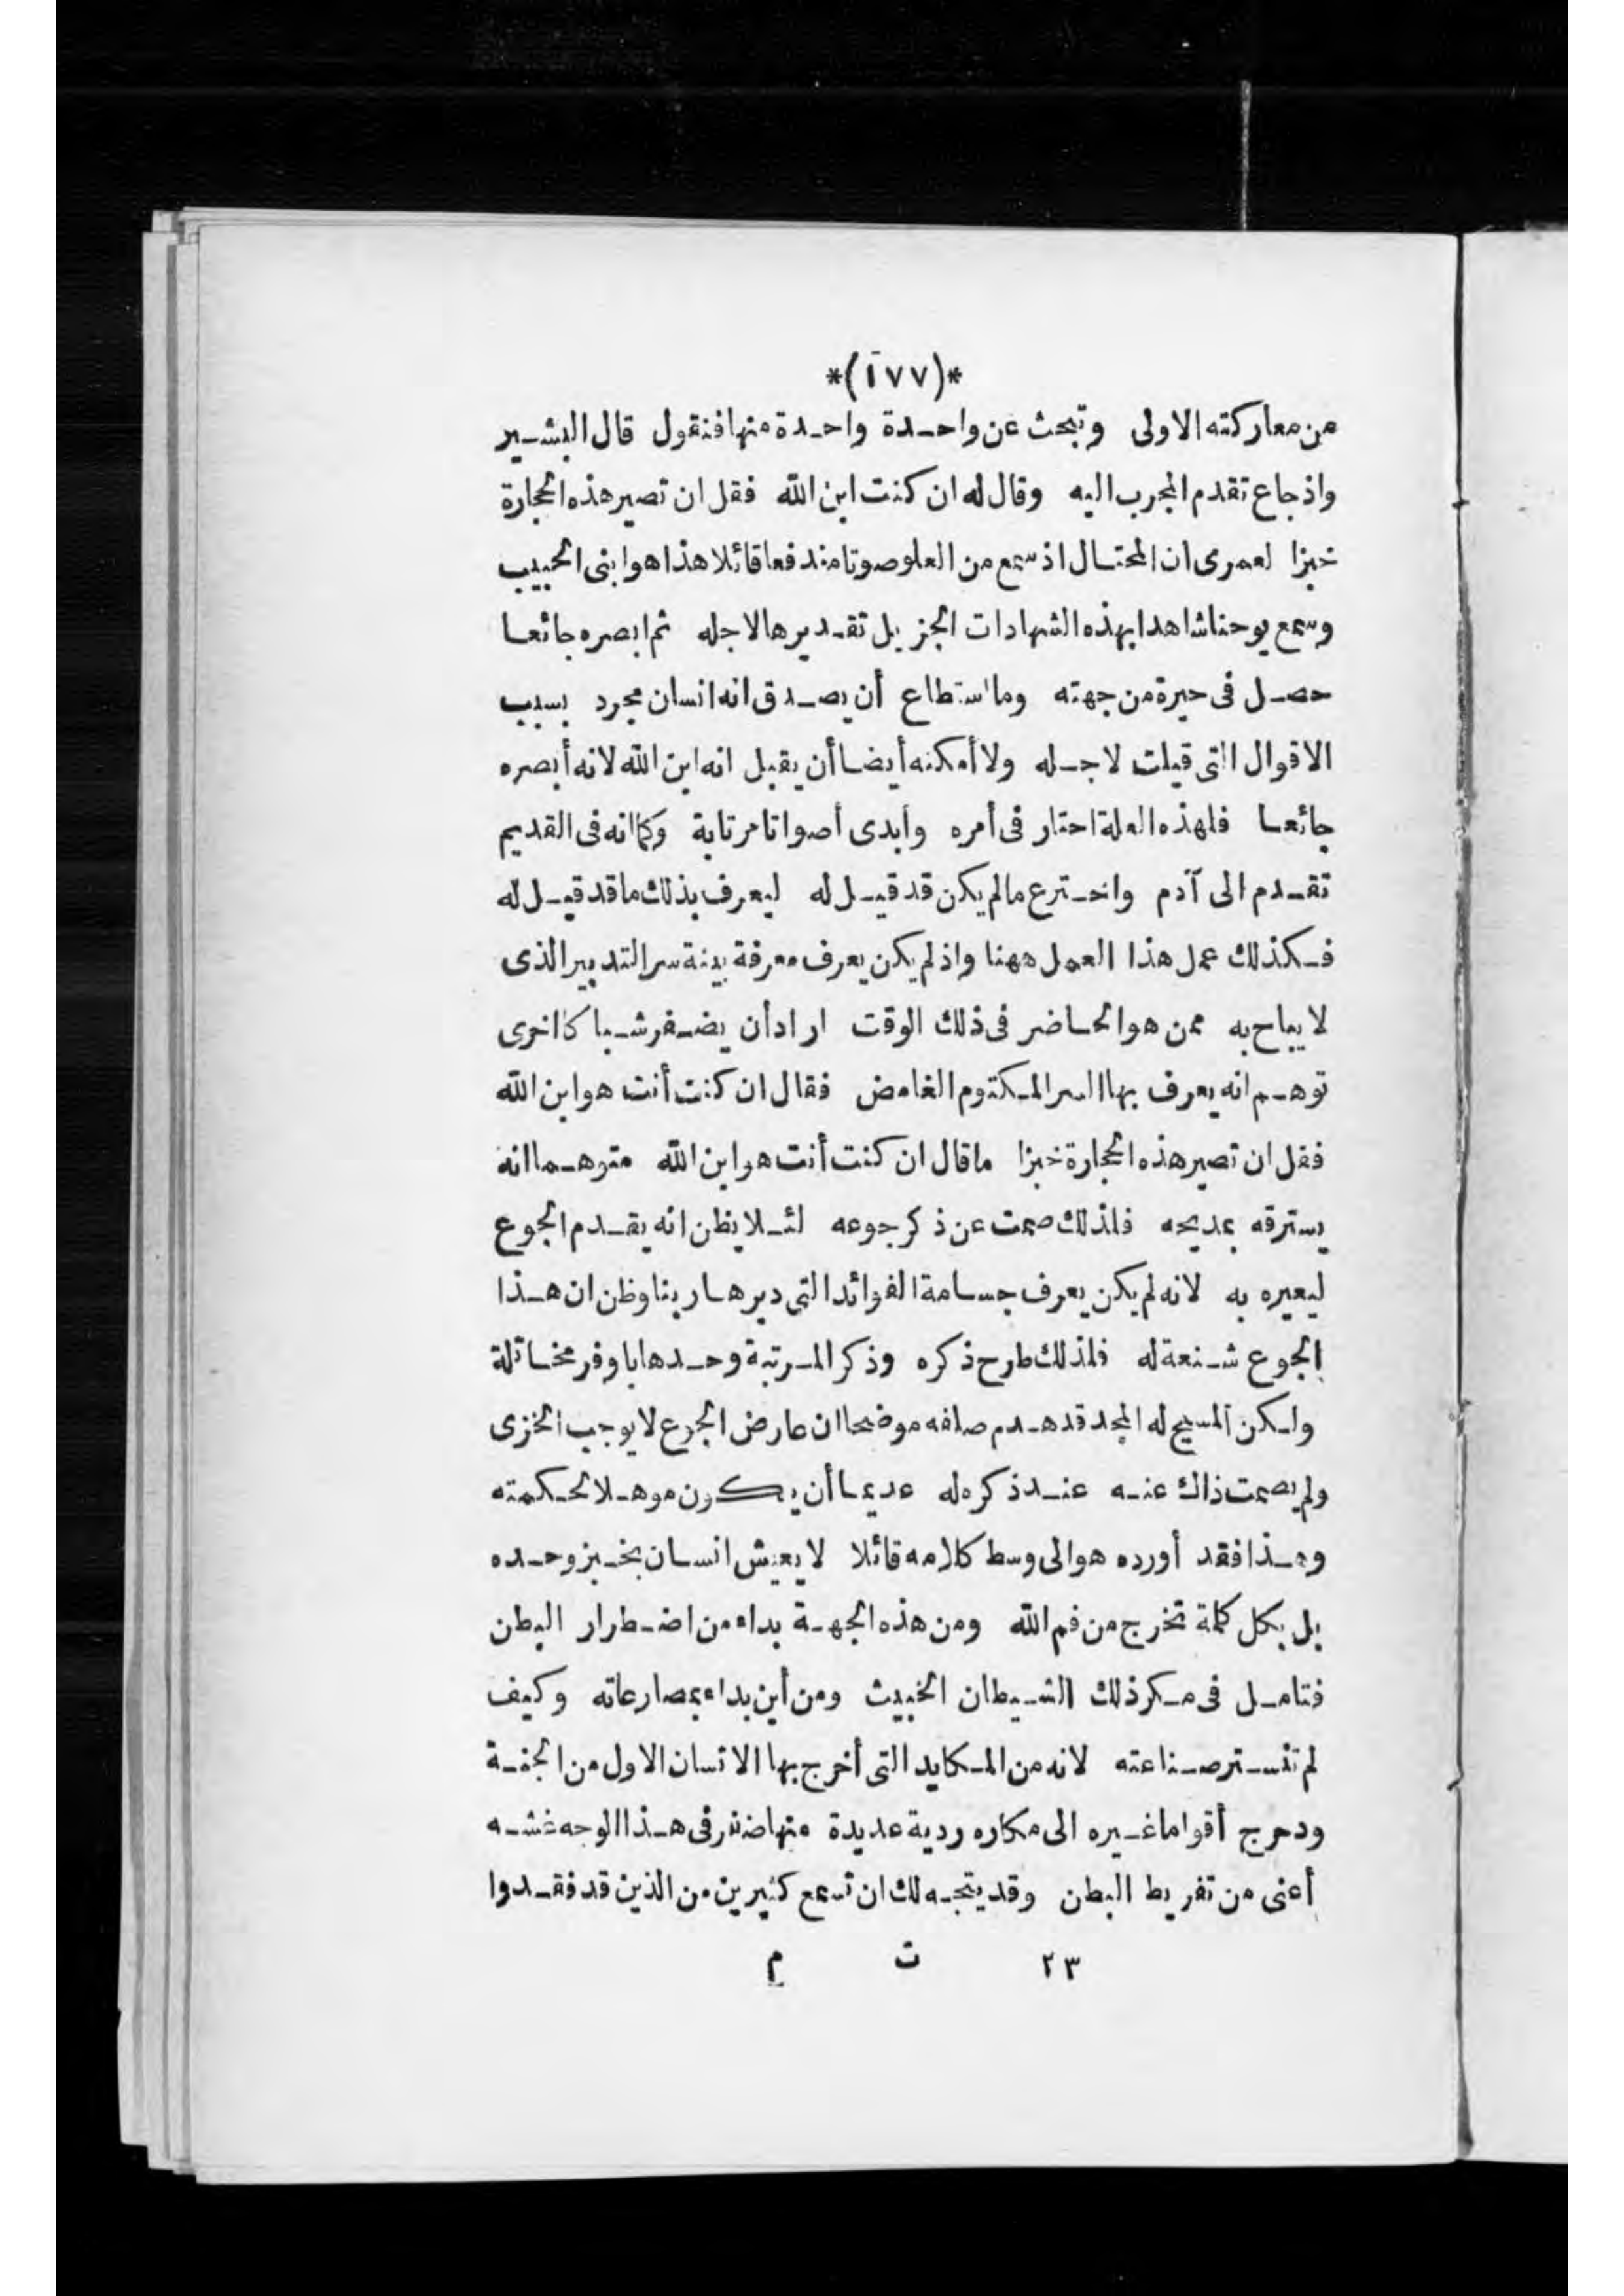 *(١٧٧)*
من معاركته الاولى وتبحث عن واحدة واحدة منها فنقول قال البشير
واذ جاع تقدم المجرب اليه وقال له ان كنت ابن الله فقل ان تصير هذه الحجارة
خبزا لعمرى ان المحتال اذ سمع من العلو صوتا مندفعا قائلا هذا هو ابنى الحبيب
وسمع يوحنا شاهدا بهذه الشهادات الجزيل تقديرها لاجله ثم ابصره جائعا
حصل فى حيرة من جهته وما استطاع أن يصدق انه انسان مجرد بسبب
الاقوال التى قيلت لاجله ولا أمكنه أيضا أن يقبل انه ابن الله لانه أبصره
جائعا فلهذه العلة احتار فى أمره وأبدى أصواتا مرتابة وكما انه فى القديم
تقدم الى آدم واخترع ما لم يكن قد قيل له ليعرف بذلك ما قد قيل له
فكذلك عمل هذا العمل ههنا واذ لم يكن يعرف معرفة بينة سر التدبير الذى
لا يباح به ممن هو الحاضر فى ذلك الوقت اراد أن يضفر شباكا اخرى
توهم انه يعرف بها السر المكتوم الغامض فقال ان كنت أنت هو ابن الله
فقل ان تصير هذه الحجارة خبزا ما قال ان كنت أنت هو ابن الله متوهما انه
يسترقه بمديحه فلذلك صمت عن ذكر جوعه لئلا يظن انه يقدم الجوع
ليعيره به لانه لم يكن يعرف جسامة الفوائد التى دبرها ربنا وظن ان هذا
الجوع شنعة له فلذلك طرح ذكره وذكر المرتبة وحدها باوفر مخاتلة
ولكن المسيح له المجد قد هدم صلفه موضحا ان عارض الجوع لا يوجب الخزى
ولم يصمت ذاك عنه عند ذكره له عديما أن يكون موهلا لحكمته
وهذا فقد أورده هو الى وسط كلامه قائلا لا يعيش انسان بخبز وحده
بل بكل كلمة تخرج من فم الله ومن هذه الجهة بداء من اضطرار البطن
فتامل فى مكر ذلك الشيطان الخبيث ومن أين بداء بمصارعاته وكيف
لم تنستر صناعته لانه من المكايد التى أخرج بها الانسان الاول من الجنة
ودحرج أقواما غيره الى مكاره ردية عديدة منها ضفر فى هذا الوجه غشه
أعنى من تفريط البطن وقد يتجه لك ان تسمع كثيرين من الذين قد فقدوا
٢٣ ت م